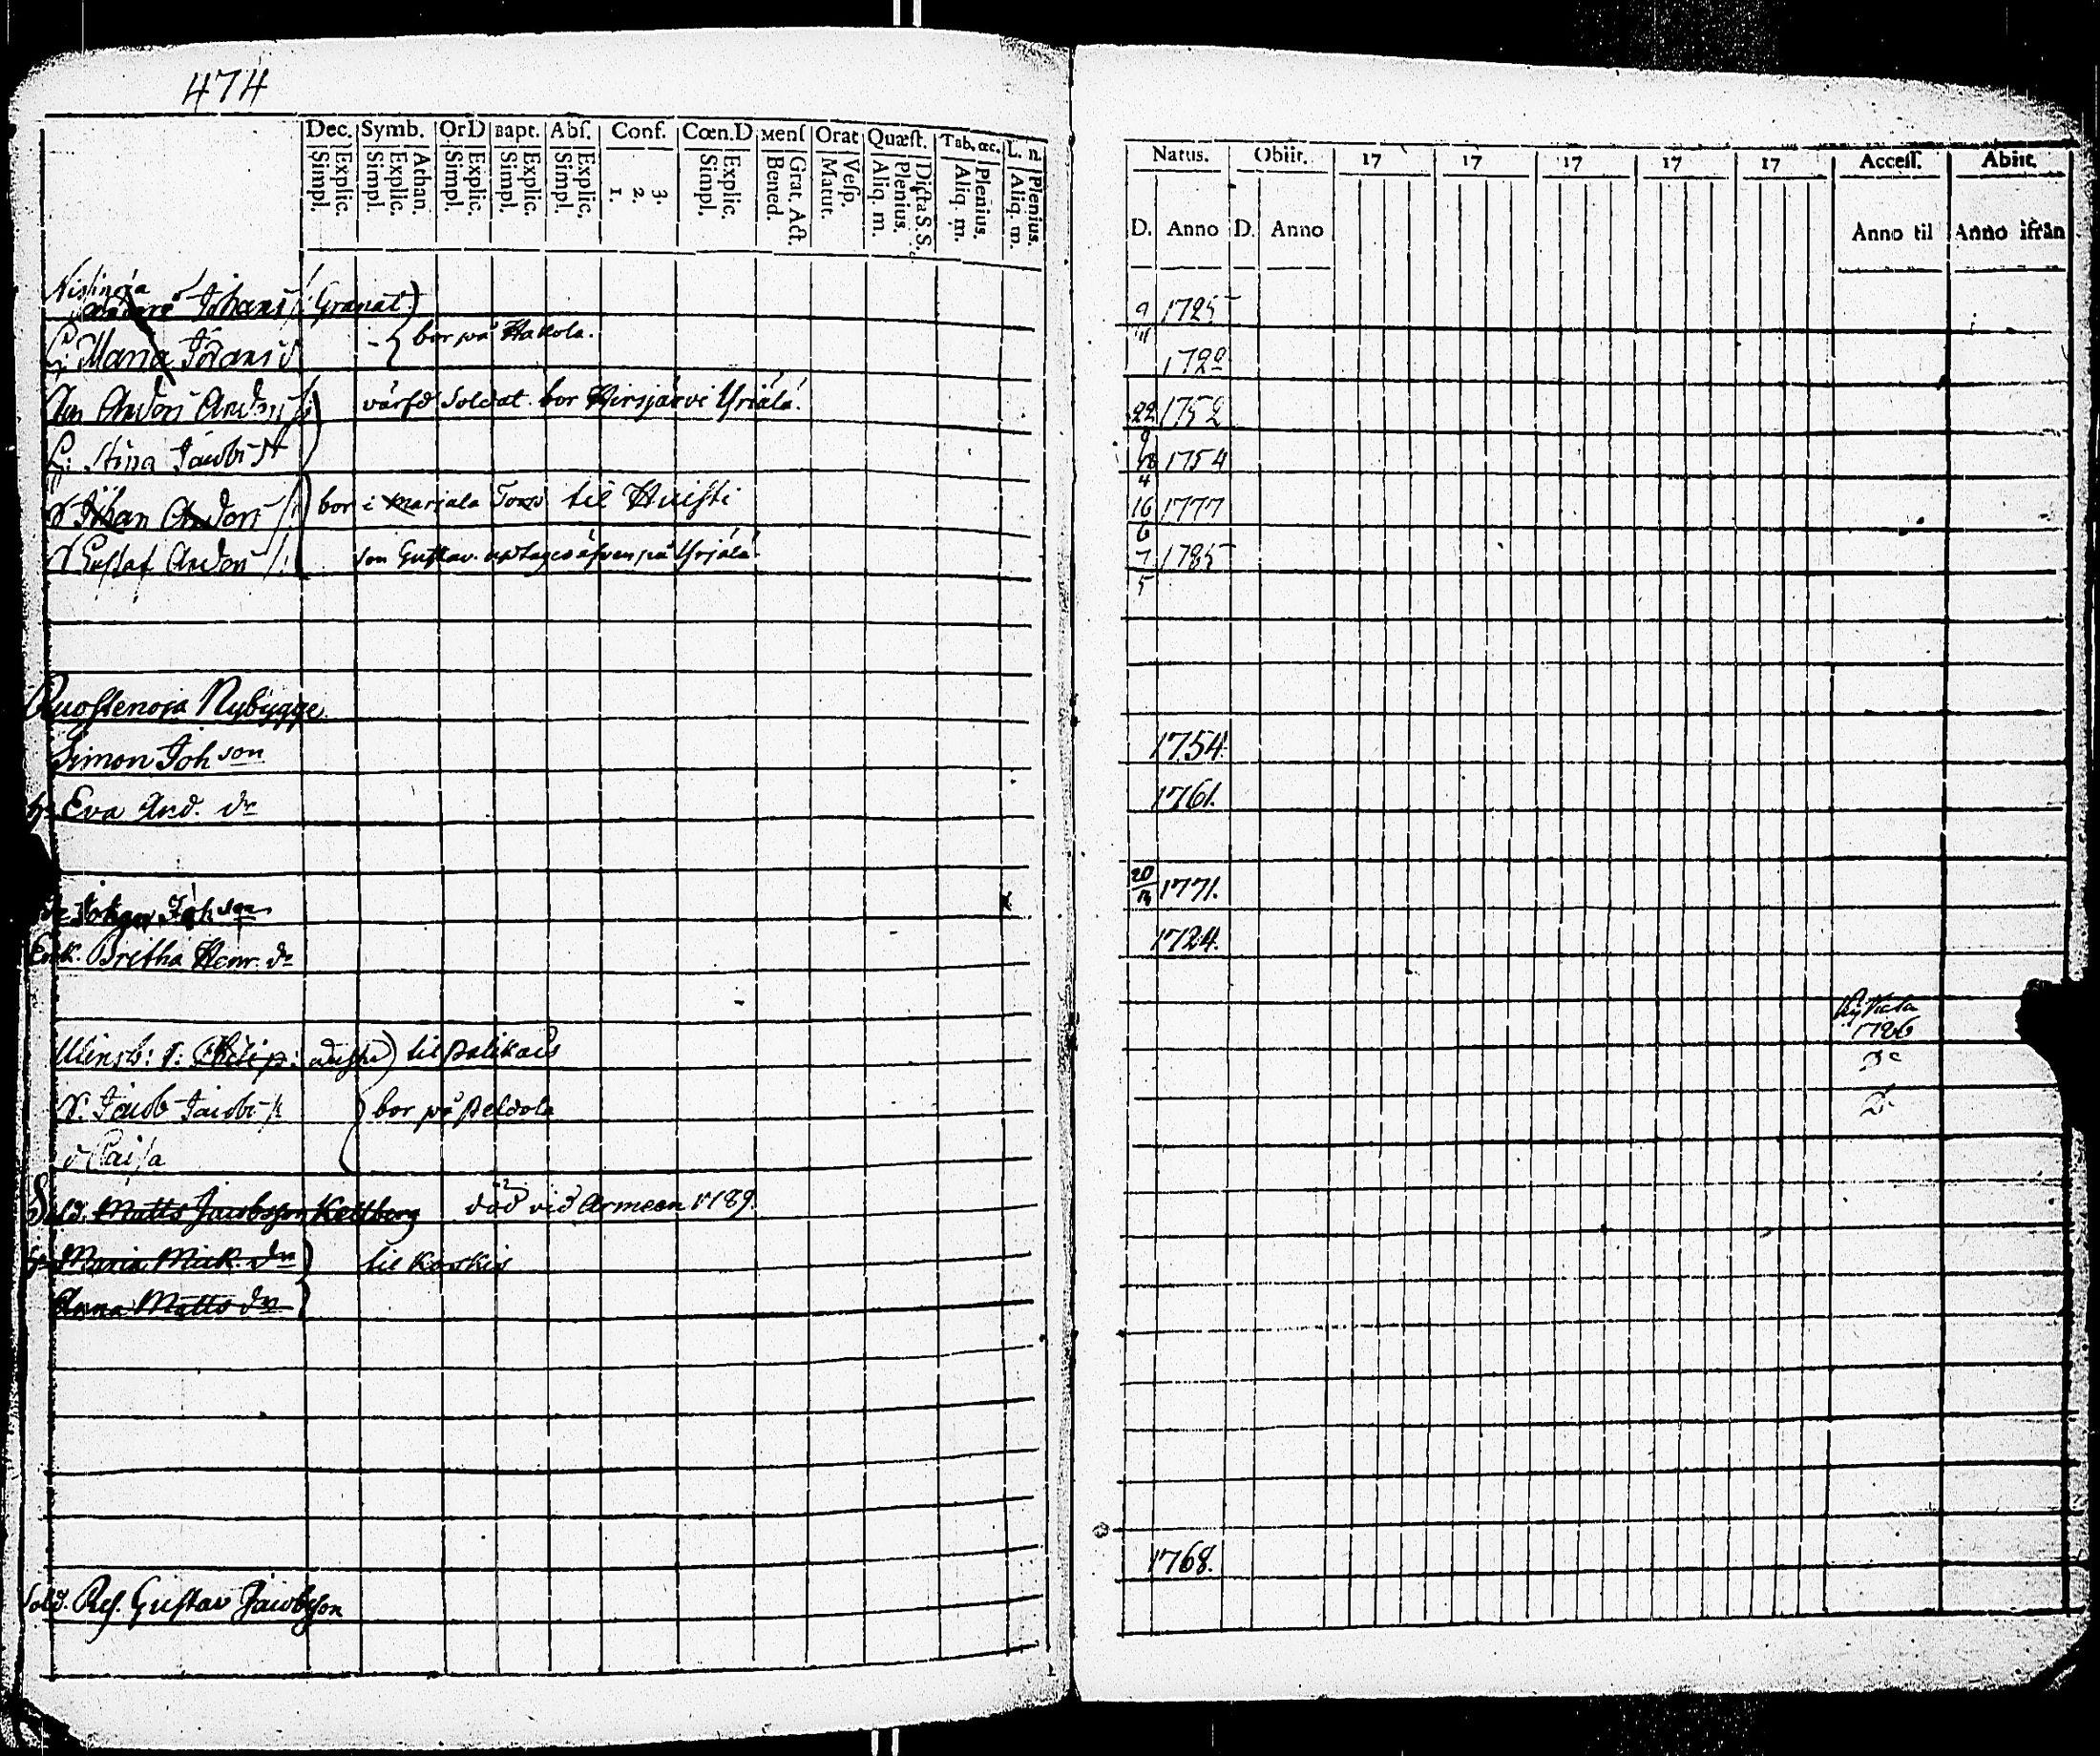 474
Dec. Symb. Or D Bapt. Abſ. Conf. Cœn.D Menſ Orat Quæſt. Tab. œc. L. n. Natus. Obiit. 17 17 17 17 17 Acceſſ. Abiit.
Simpl. Explic. Simpl. Explic. Athan. Simpl. Explic. Simpl. Explic. Simpl. Explic. 1. 2. 3. Simpl. Explic. Bened. Grat. Act. Matut. Veſp. Aliq. m. Plenius. Dicta S.S. Aliq. m. Plenius. Aliq. m. Plenius. D. Anno D. Anno Anno til Anno ifrån
Johans Granat) 9/11 1725
H: Maria Jörans d bor på Hakola. 172
Anders Anders värfd Soldat bor Hirsjärvi Yriälä. 22/9 1752
H: Stina Jacobs 4 1754
S Johan Anders bor i Marjala Torp til Huisti 16/6 1777
S Gustaf Anders son Gustav. uptages äfven på Yrjälä. 7/5 1785
Ruostenoja Nybygge
Simon Joh son 1754.
h. Eva And. dr 1761.
Johan Joh son 20 1771.
Enk. Bretha Henr. dr 1724.
1786
Philip: til Palikais
S. Jacob Jacobs bor på Peldola
d Caisa
Sold. Matts Jacobsson Kellberg död vid Armeen 1789.
h. Maria Mick. dr til Koskis
Anna Matts dr
1768.
Sold. Res. Gustav Jacobsson